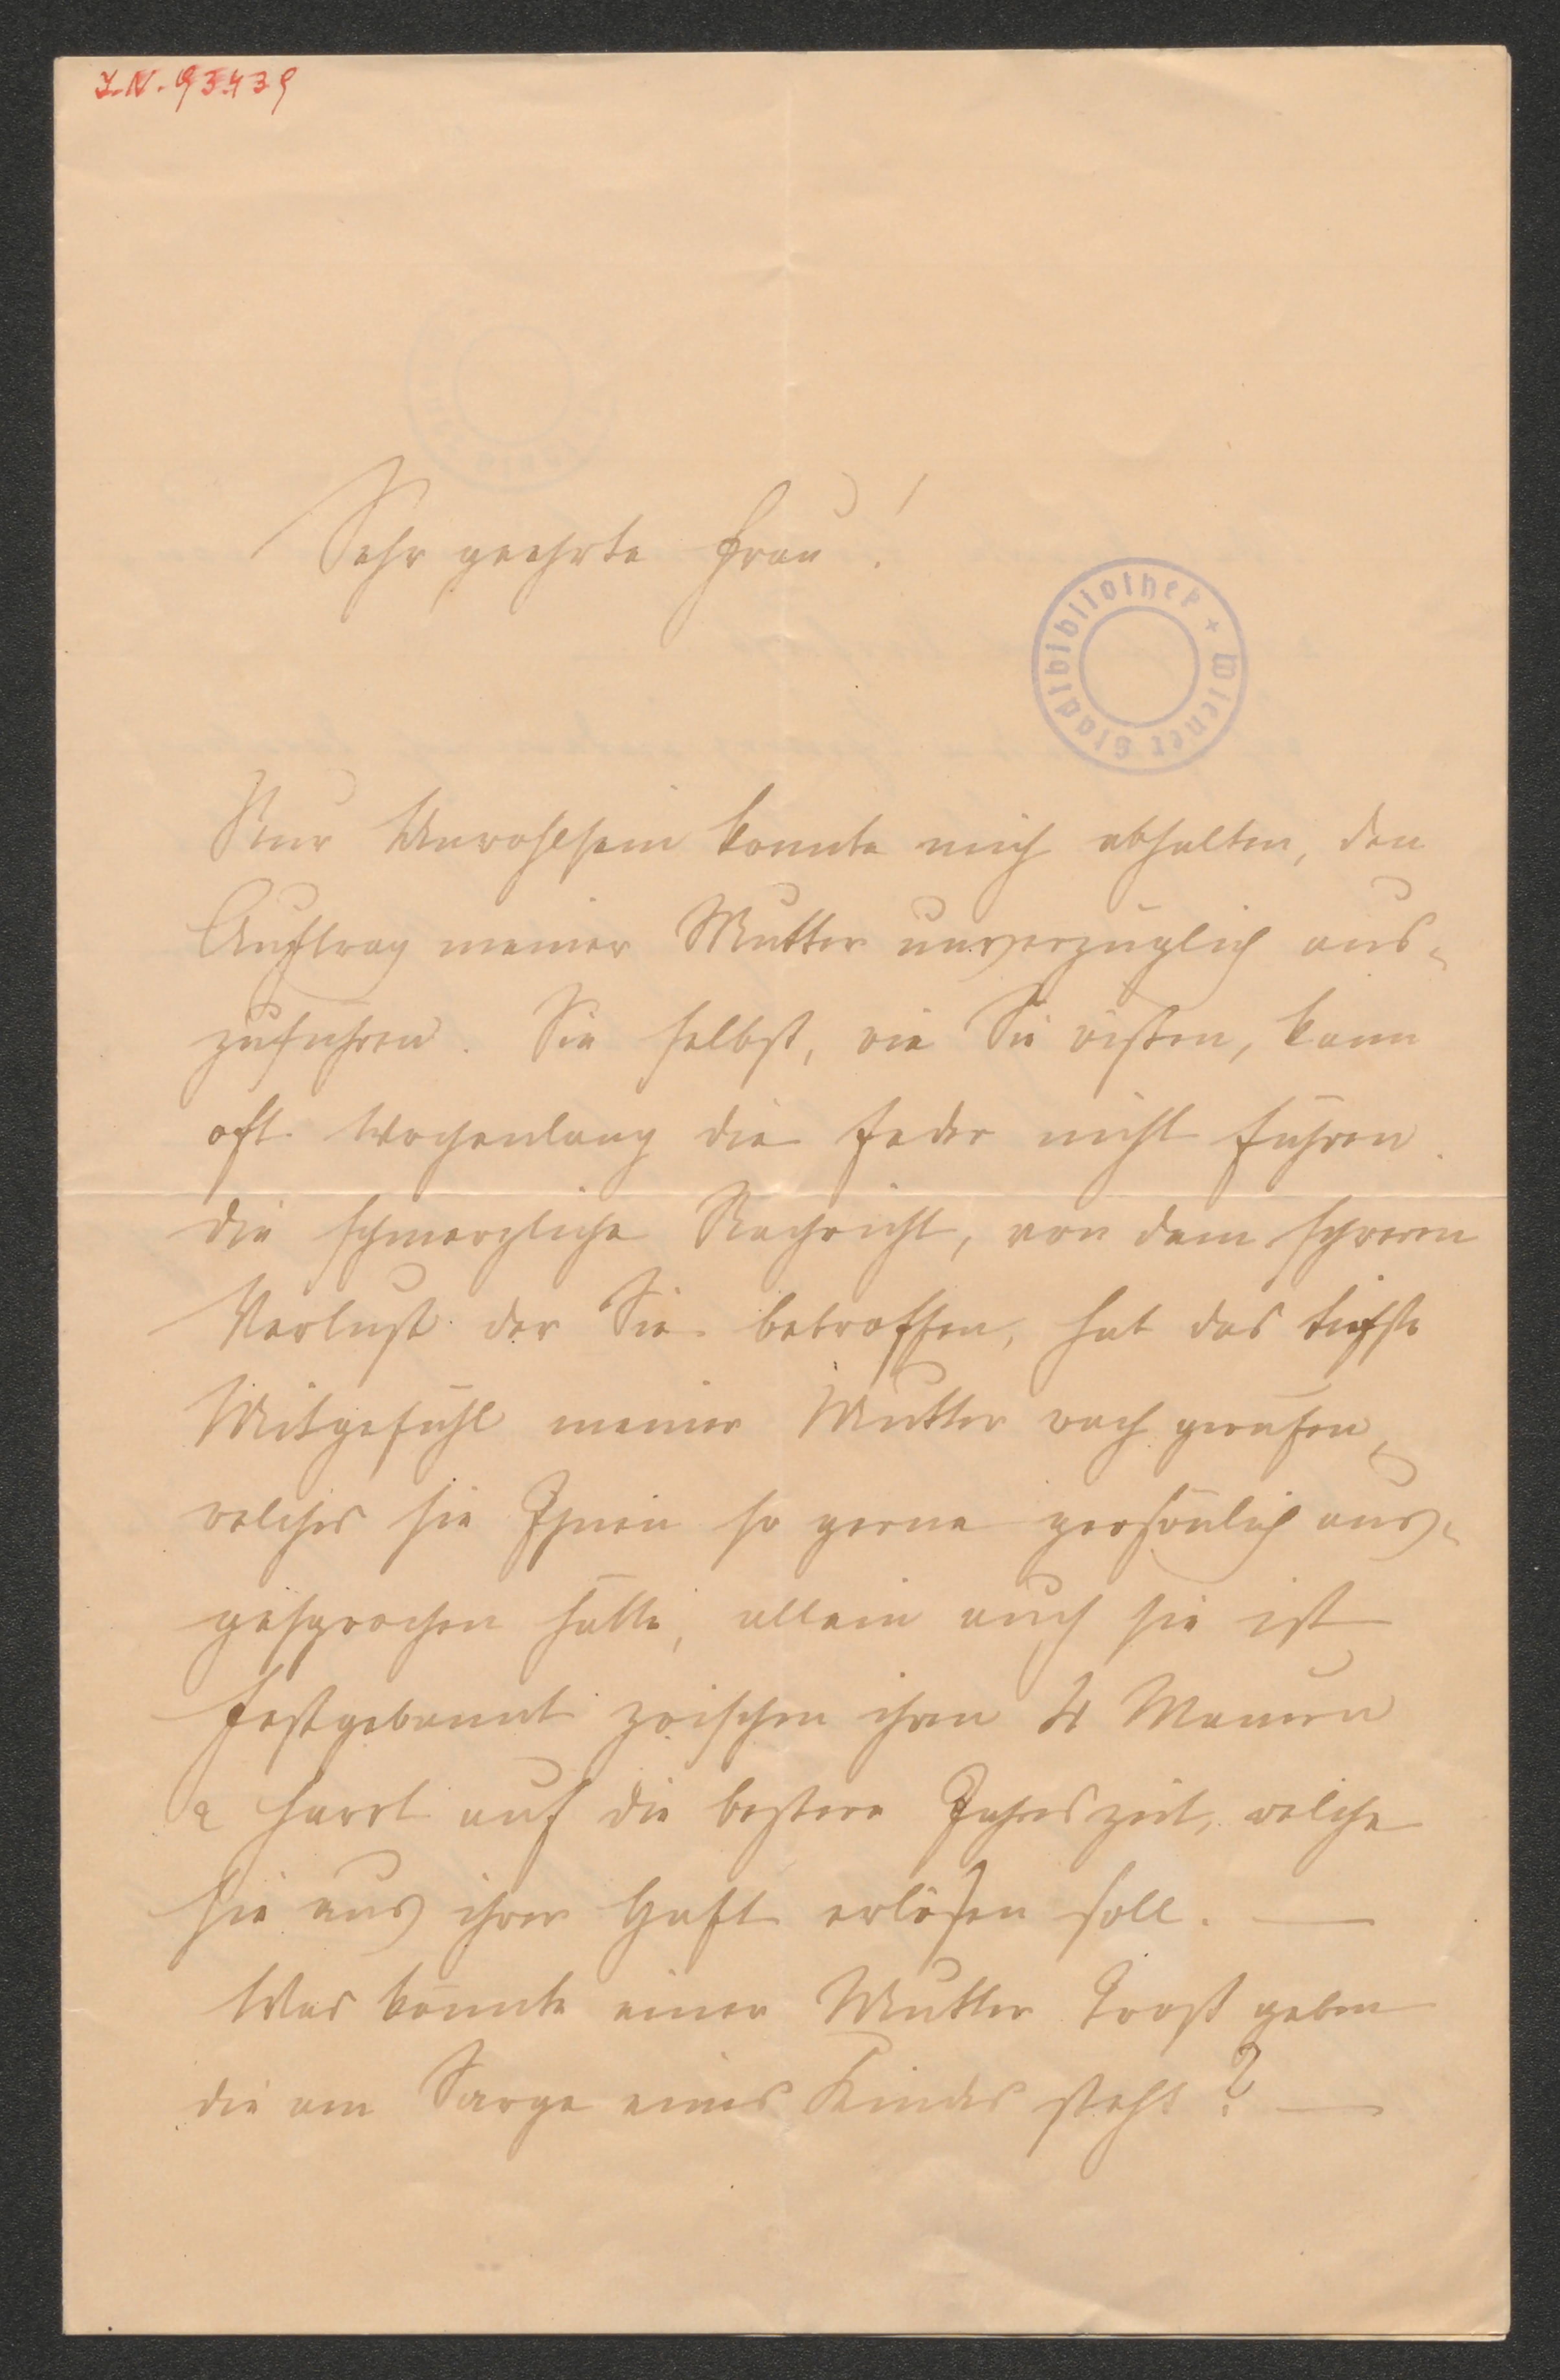 I.N. 93439
Sehr geehrte Frau!
Wiener Stadtbibliothek +
Nur Unwohlsein konnte mich abhalten, den
Auftrag meiner Mutter unverzüglich aus-
zuführen. Sie selbst, wie Sie wißen, kann
oft wochenlang die Feder nicht führen.
Die schmerzliche Nachricht, von dem schweren
Verlust der Sie betroffen, hat das tiefste
Mitgefühl meiner Mutter wach gerufen,
welches sie Ihnen so gerne persönlich aus-
gesprochen hätte, allein auch sie ist
festgebannt zwischen ihren 4 Mauern
& harrt auf die beßere Jahreszeit, welche
sie aus ihrer Haft erlösen soll. —
Was könnte einer Mutter Trost geben
die am Sarge eines Kindes steht? —